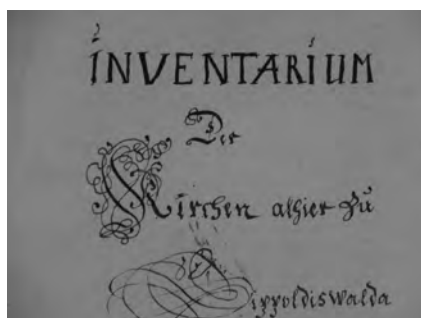 INVENTARIUM
Der
Kirchen alhier zu
Dippoldiswalda